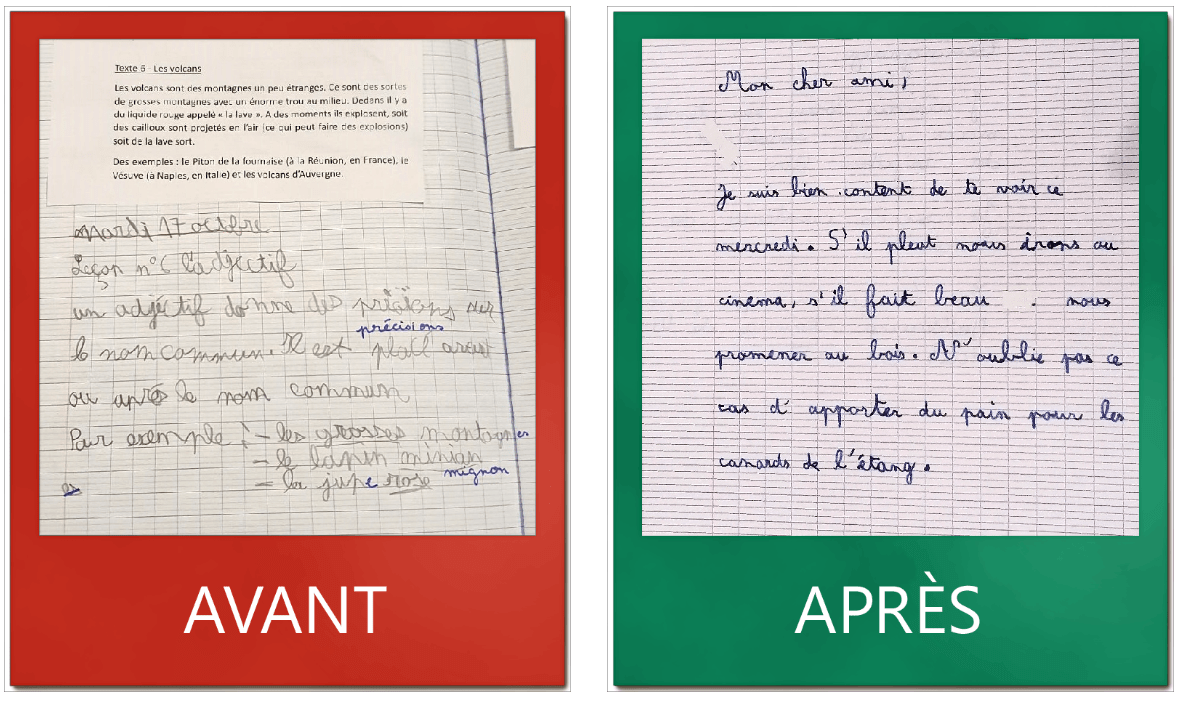 Texte 6 - Les volcans
Les volcans sont des montagnes un peu étranges. Ce sont des sortes
de grosses montagnes avec un énorme trou au milieu. Dedans il y a
du liquide rouge appelé « la lave ». A des moments ils explosent, soit
des cailloux sont projetés en l'air (ce qui peut faire des explosions)
soit de la lave sort.
Des exemples : le Piton de la fournaise (à la Réunion, en France), le
Vésuve (à Naples, en Italie) et les volcans d'Auvergne.
Mardi 17 octobre
Leçon n°6 l'adjectif
un adjectif donne des sur
précisions
le nom commun. Il est avant
ou après le nom commun
Par exemple : - les grosses montagnes
- le lapin minian
mignon
- la jupe rose
es
AVANT
Mon cher ami,
Je suis bien content de te voir ce
mercredi. S'il pleut nous irons au
cinema, s'il fait beau . nous
promener au bois. N'oublie pas ce
cas d'apporter du pain pour les
canards de l'étang.
APRÈS